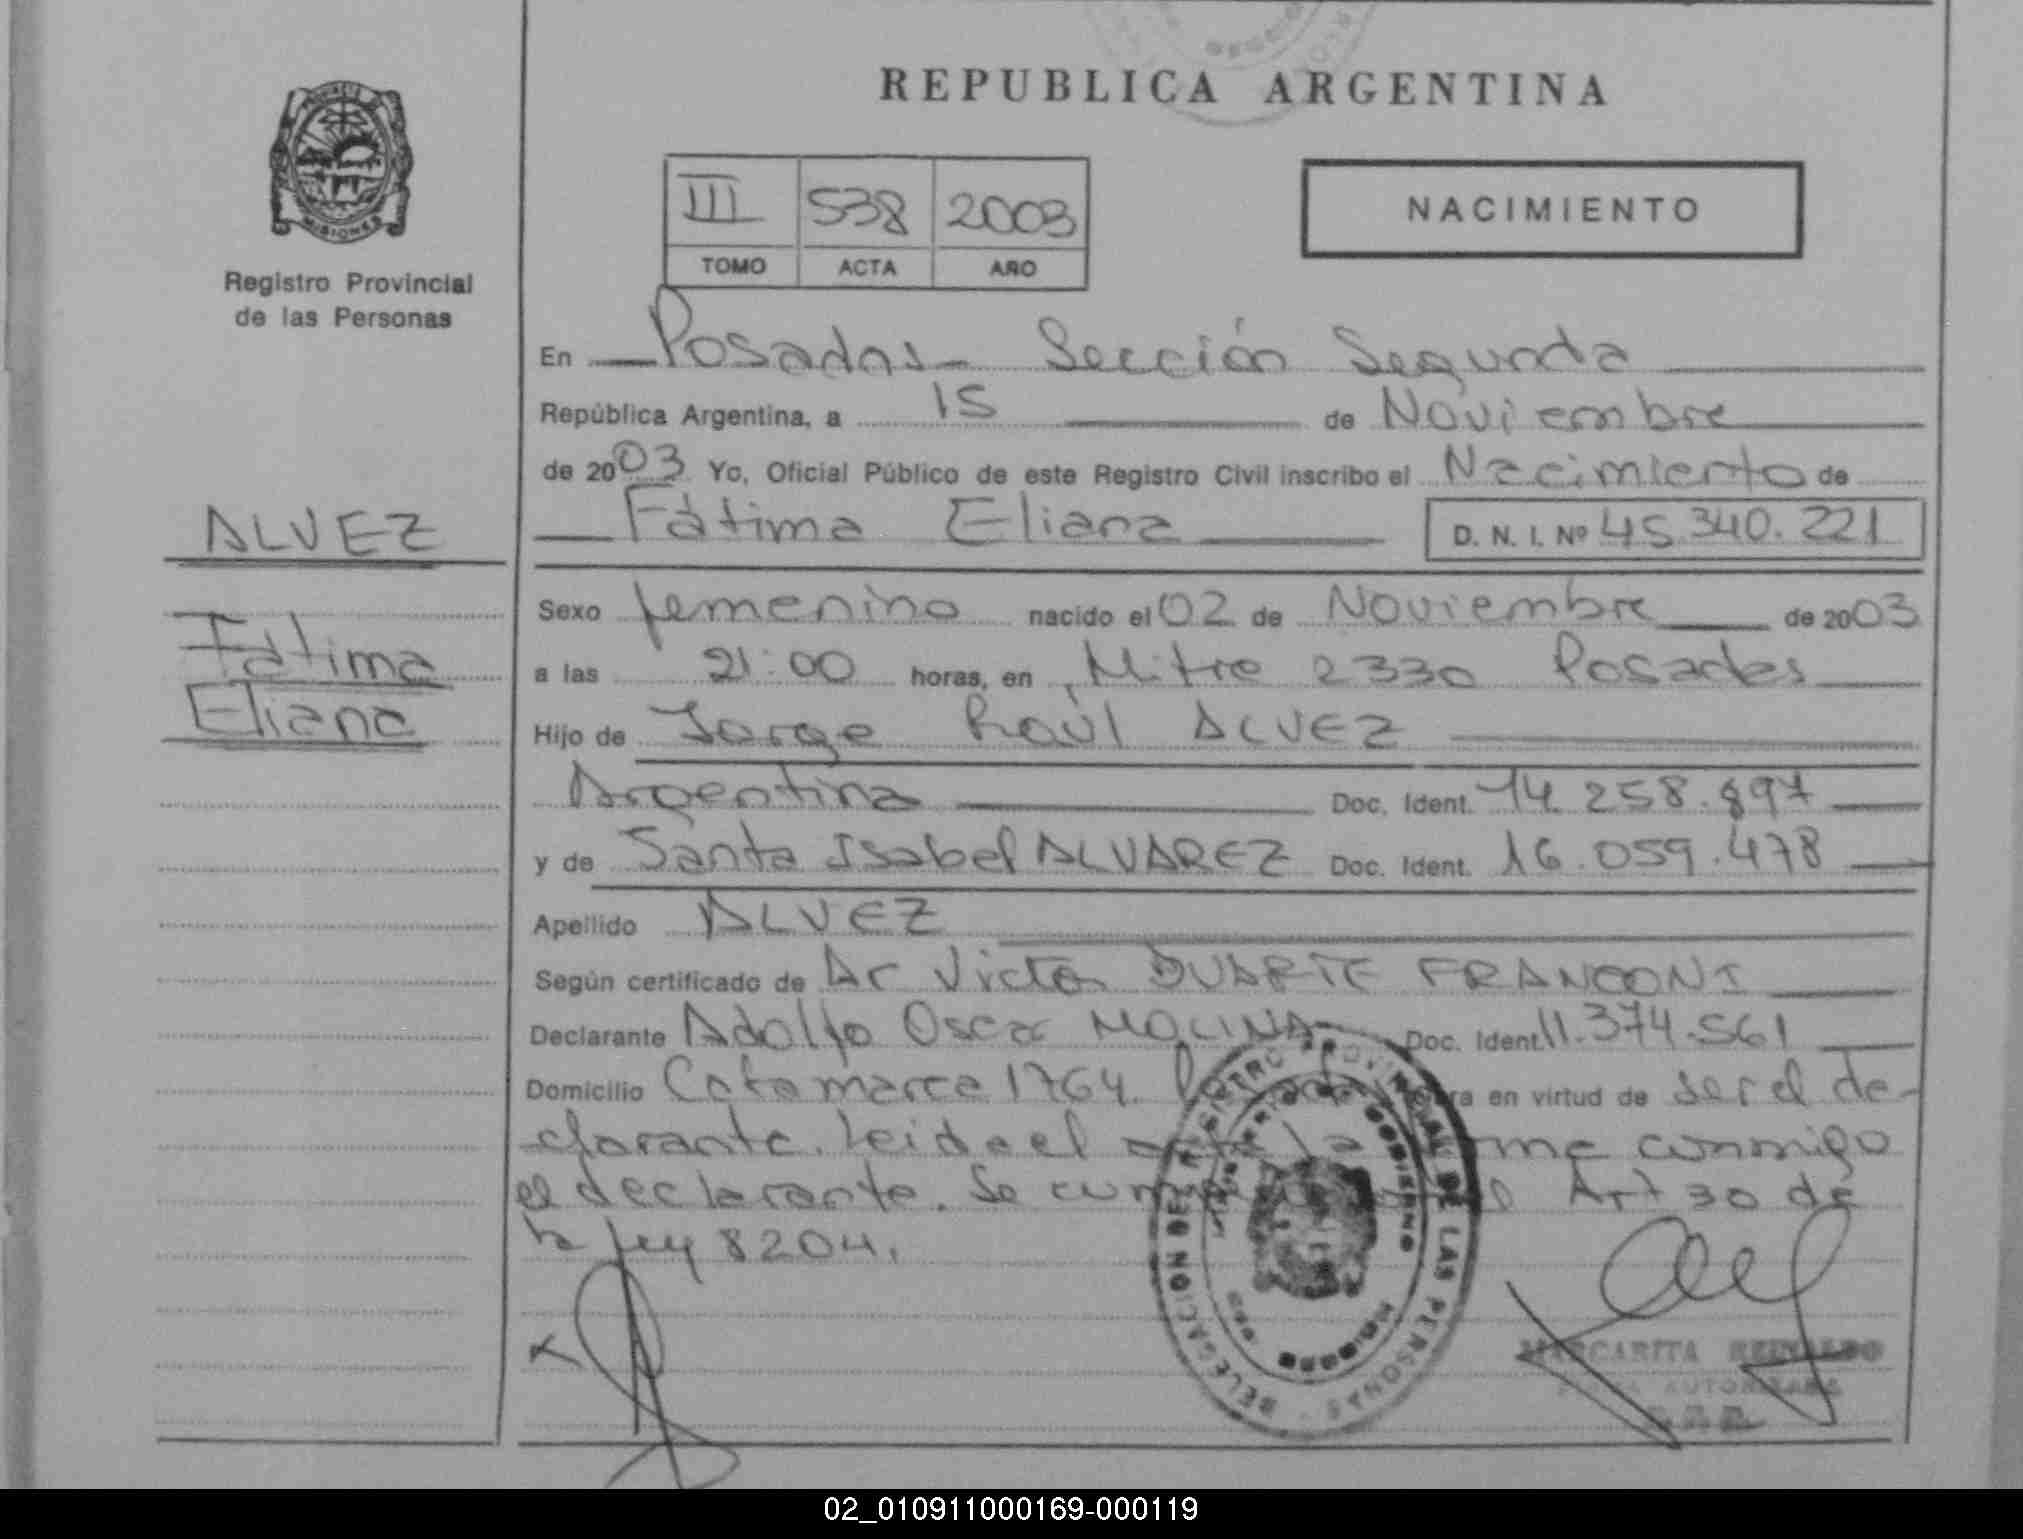 REPUBLICA ARGENTINA
PROVINCIA DE
MISIONES
Registro Provincial
de las Personas
III 538 2003
TOMO ACTA AÑO
NACIMIENTO
En Posadas - Sección Segunda
República Argentina, a 15 de Noviembre
de 2003 Yo, Oficial Público de este Registro Civil inscribo el Nacimiento de
Fátima Eliana D. N. I. Nº 45.340.221
ALVEZ
Fátima
Eliana
Sexo femenino nacido el 02 de Noviembre de 2003
a las 21:00 horas, en Mitre 2330 Posadas
Hijo de Jorge Raúl ALVEZ
Argentina Doc. Ident. 14.258.897
y de Santa Isabel ALVAREZ Doc. Ident. 16.059.478
Apellido ALVEZ
Según certificado de Dr Victor DUARTE FRANCONI
Declarante Adolfo Oscar MOLINA Doc. Ident. 11.374.561
Domicilio Catamarca 1764. en virtud de ser el de-
clarante. Leida el la conmigo
el declarante. Se Art 30 de
la ley 8204.
DELEGACION DEL REGISTRO PROVINCIAL DE LAS PERSONAS
GOBIERNO
MISIONES
MARGARITA
AUTORIZADA
02_010911000169-000119